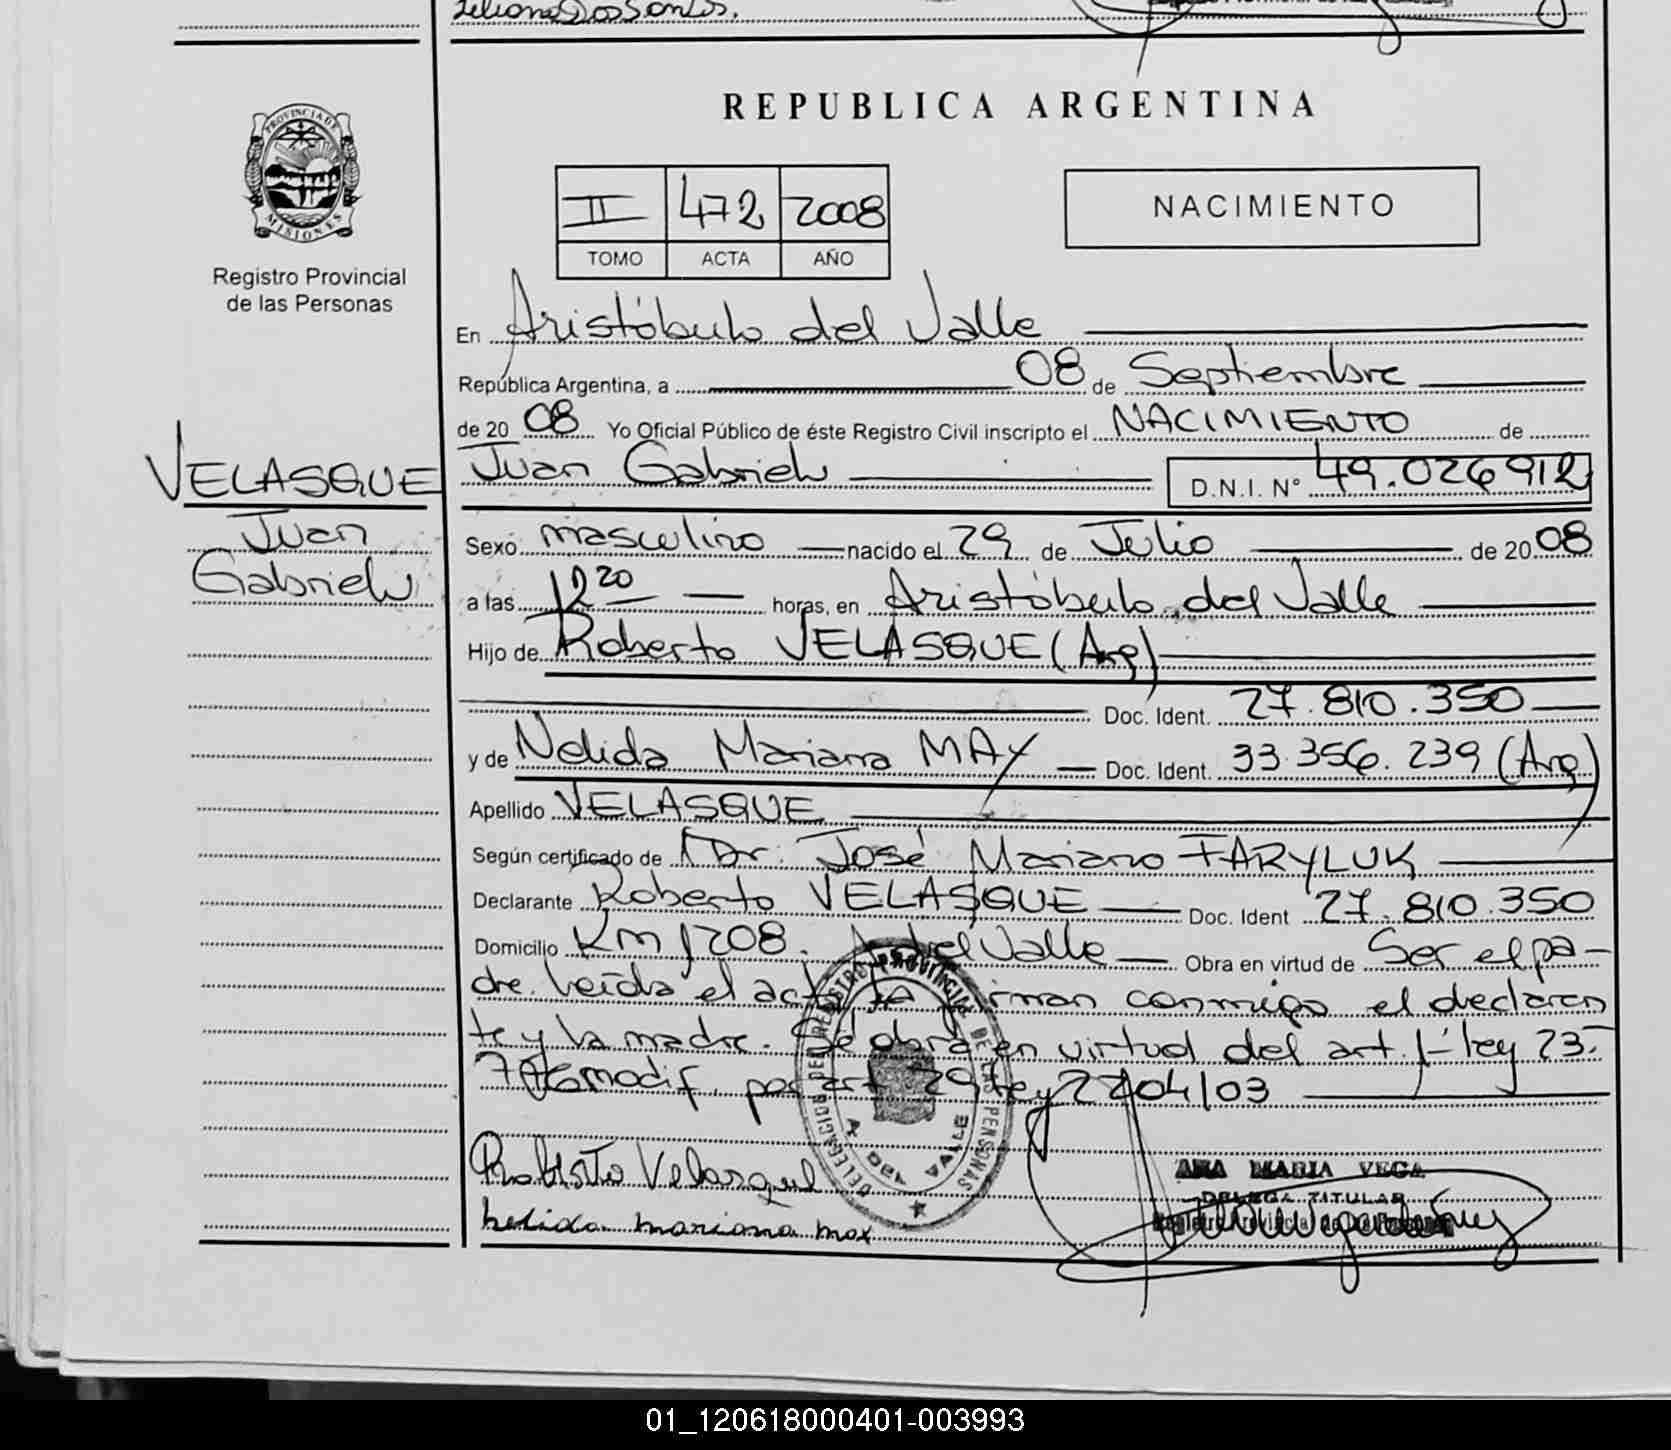 Liliana Dos Santos.
REPUBLICA ARGENTINA
PROVINCIA DE MISIONES
Registro Provincial
de las Personas
II 472 2008
TOMO ACTA AÑO
NACIMIENTO
En Aristóbulo del Valle
República Argentina, a 08 de Septiembre
de 20 08 Yo Oficial Público de éste Registro Civil inscripto el NACIMIENTO de
VELASQUE
Juan
Gabriel
Juan Gabriel D.N.I. N° 49.026912
Sexo masculino nacido el 29 de Julio de 20 08
a las 12 20 horas, en Aristóbulo del Valle
Hijo de Roberto VELASQUE (Arg)
Doc. Ident. 27.810.350
y de Nelida Mariana MAY Doc. Ident. 33.356.239 (Arg)
Apellido VELASQUE
Según certificado de Dr. José Mariano FARYLUK
Declarante Roberto VELASQUE Doc. Ident 27.810.350
Domicilio Km 1208. A. del Valle Obra en virtud de Ser el pa-
dre. leída el acta la firman conmigo el declaran
te y la madre. Se obra en virtud del art. 1- ley 23.
776 modif. por art 29 ley 2704/03
DELEGACION DEL REGISTRO PROVINCIAL DE LAS PERSONAS
VALLE
Roberto Velasque
nelida mariana may
ANA MARIA VEGA
DELEGA. TITULAR
01_120618000401-003993